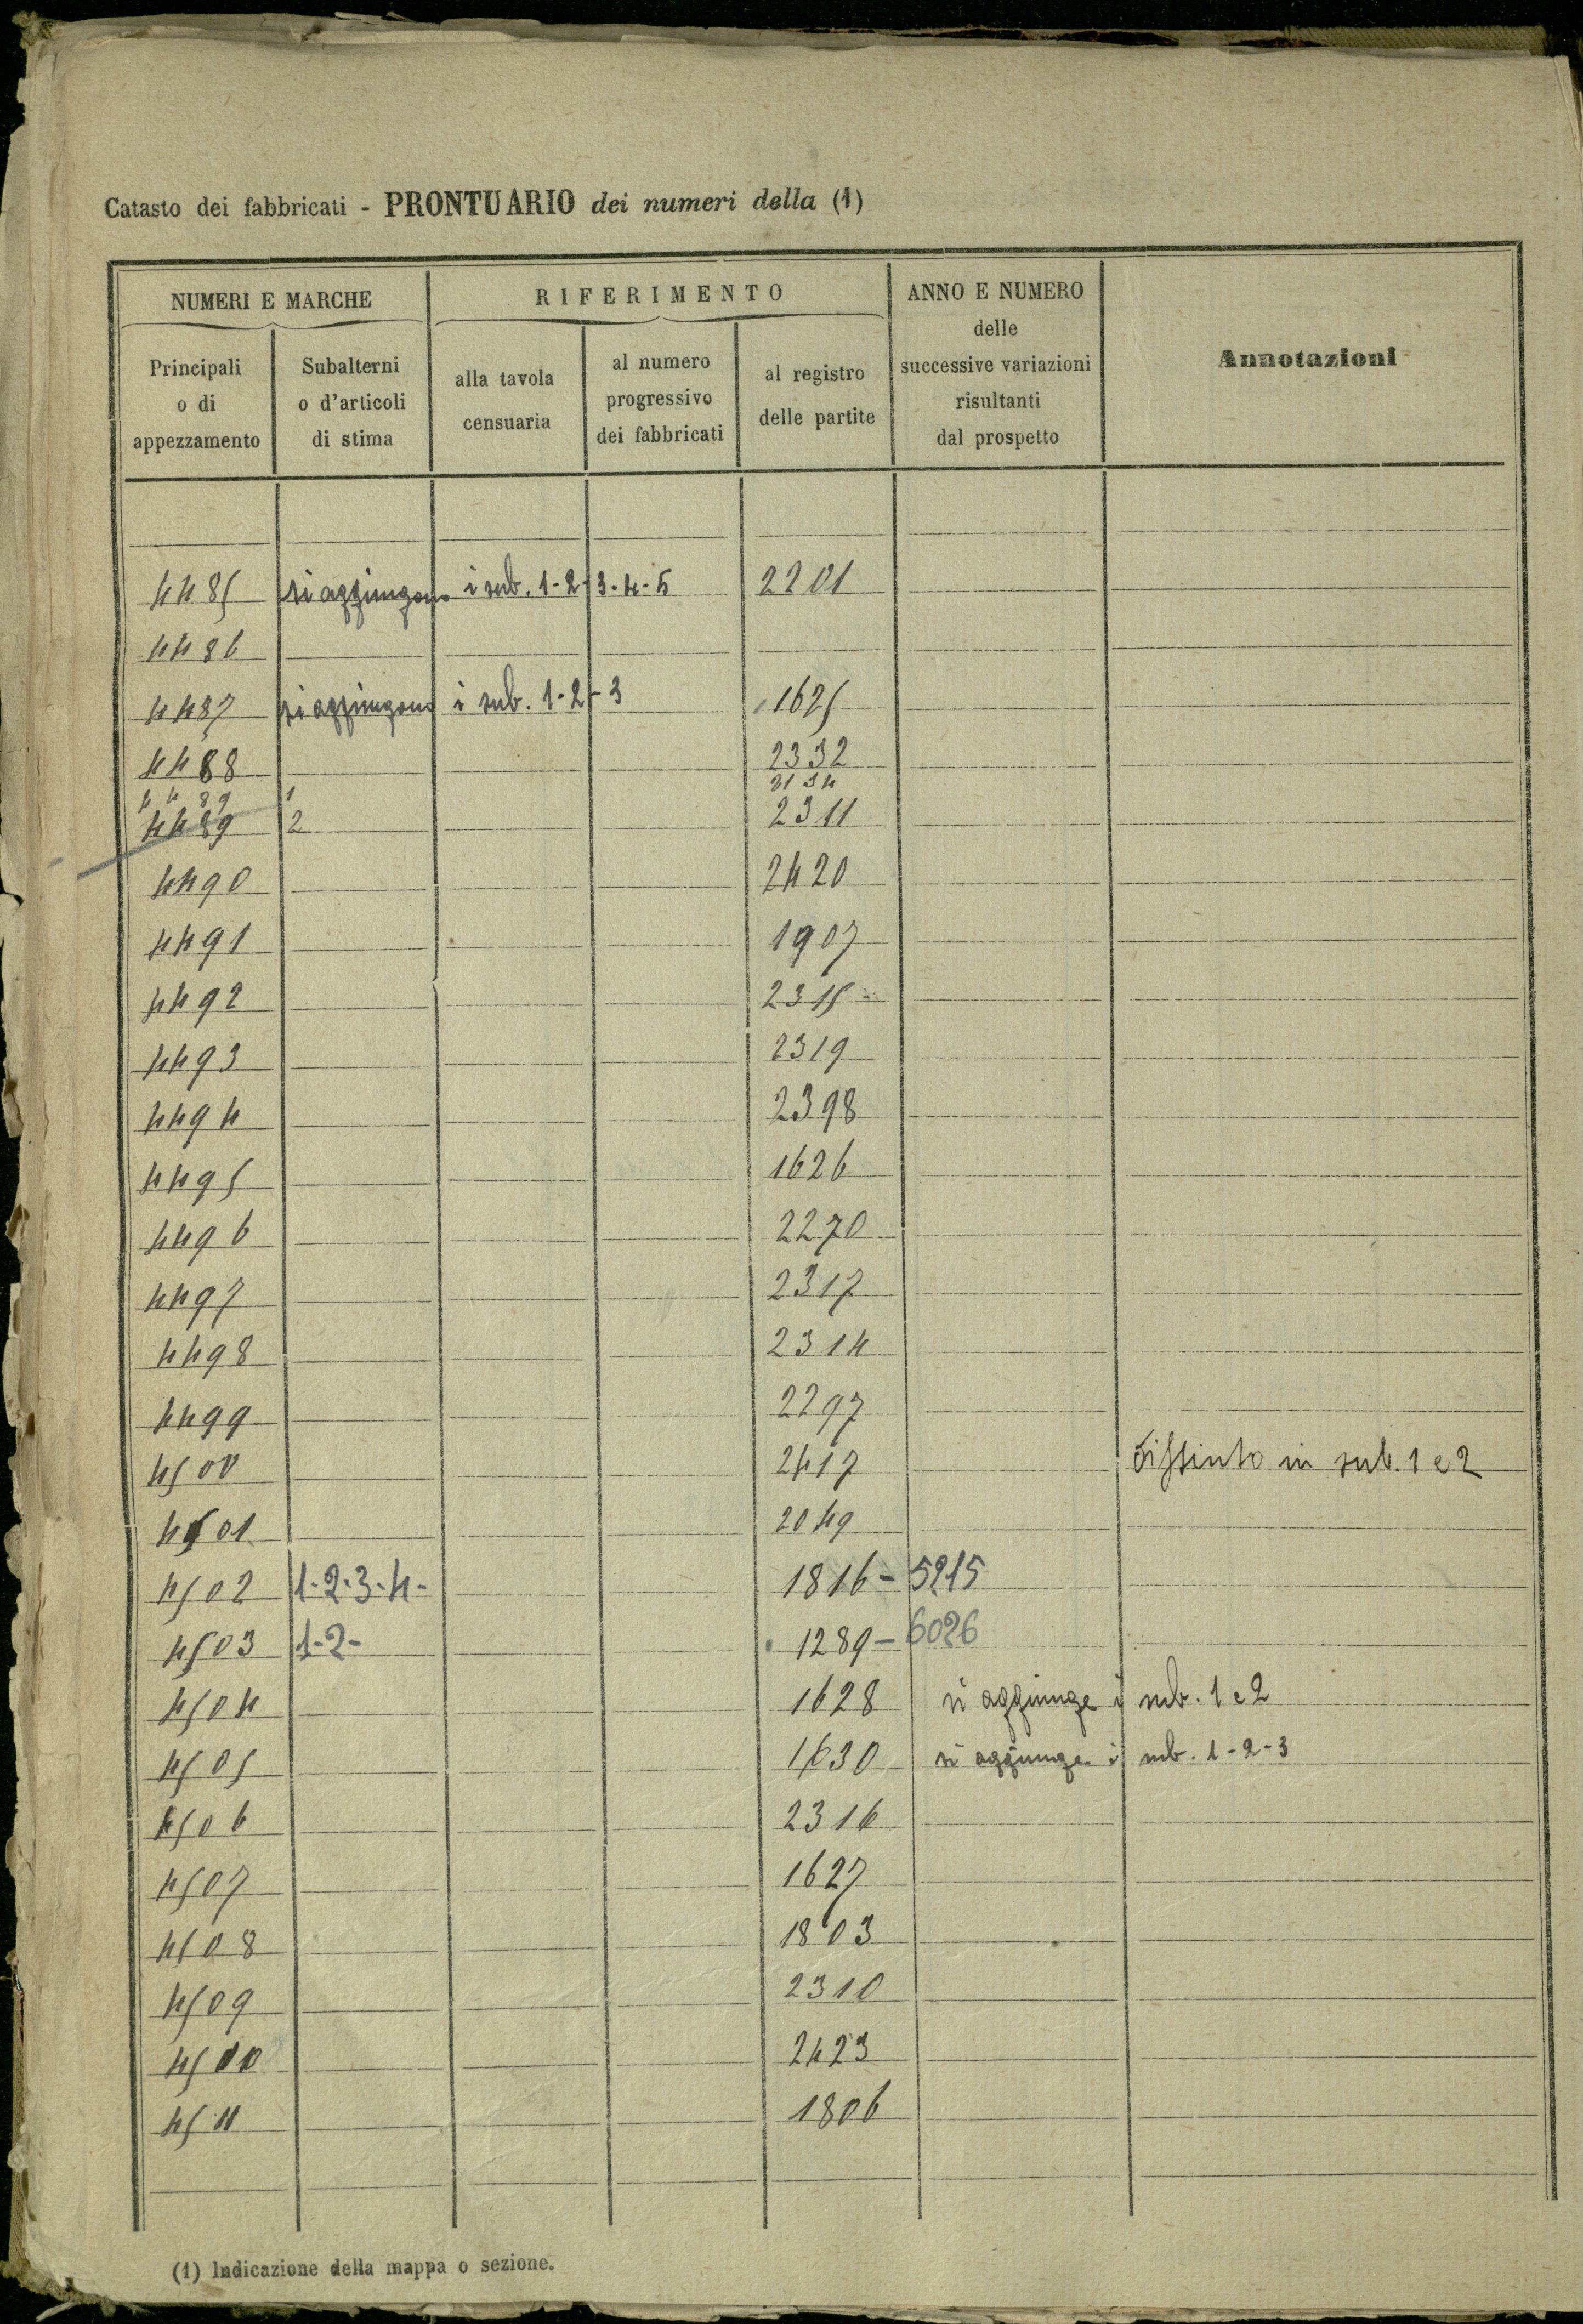 Catasto dei fabbricati - PRONTUARIO dei numeri della (1)
NUMERI E MARCHE
Principali o di appezzamento
Subalterni o d'articoli di stima
RIFERIMENTO
alla tavola censuaria
al numero progressivo dei fabbricati
al registro delle partite
ANNO E NUMERO delle successive variazioni risultanti dal prospetto
Annotazioni
4485 si aggiungono i sub. 1-2-3-4-5 2201
4486
4487 si aggiungono i sub. 1-2-3 1625
4488 2332
4489 1 2134
4489 2 2311
4490 2420
4491 1907
4492 2315
4493 2319
4494 2398
4495 1626
4496 2270
4497 2317
4498 2314
4499 2297
4500 2417 Distinto in sub. 1 e 2
4501 2049
4502 1-2-3-4- 1816 - 5215
4503 1-2- 1289 - 6026
4504 1628 si aggiunge i sub. 1 e 2
4505 1630 si aggiunge i sub. 1-2-3
4506 2316
4507 1627
4508 1803
4509 2310
4510 2423
4511 1806
(1) Indicazione della mappa o sezione.